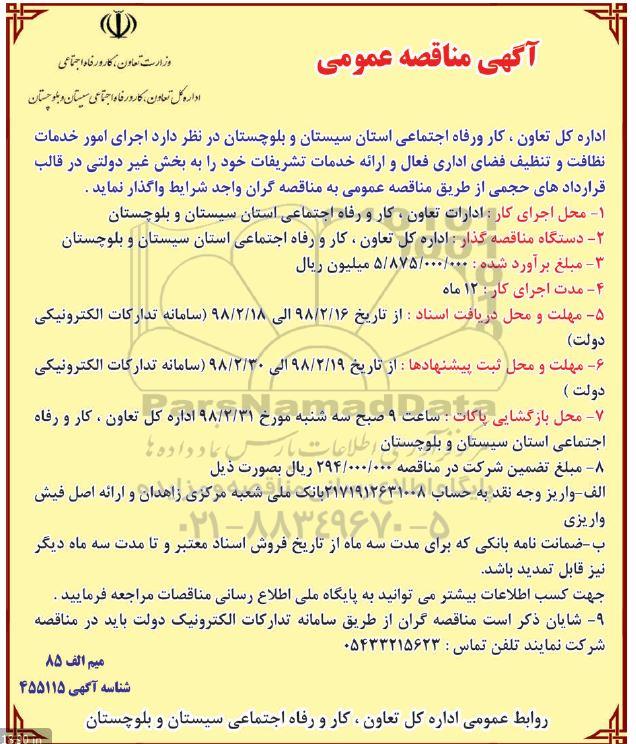 آگهی مناقصه عمومی
وزارت تعاون، کار و رفاه اجتماعی
اداره کل تعاون، کار و رفاه اجتماعی سیستان و بلوچستان
اداره کل تعاون ، کار ورفاه اجتماعی استان سیستان و بلوچستان در نظر دارد اجرای امور خدمات
نظافت و تنظیف فضای اداری فعال و ارائه خدمات تشریفات خود را به بخش غیر دولتی در قالب
قرارداد های حجمی از طریق مناقصه عمومی به مناقصه گران واجد شرایط واگذار نماید .
۱- محل اجرای کار : ادارات تعاون ، کار و رفاه اجتماعی استان سیستان و بلوچستان
۲- دستگاه مناقصه گذار : اداره کل تعاون ، کار و رفاه اجتماعی استان سیستان و بلوچستان
۳- مبلغ برآورد شده : ۵/۸۷۵/۰۰۰/۰۰۰ میلیون ریال
۴- مدت اجرای کار : ۱۲ ماه
۵- مهلت و محل دریافت اسناد : از تاریخ ۹۸/۲/۱۶ الی ۹۸/۲/۱۸ (سامانه تدارکات الکترونیکی
دولت)
۶- مهلت و محل ثبت پیشنهادها : از تاریخ ۹۸/۲/۱۹ الی ۹۸/۲/۳۰ (سامانه تدارکات الکترونیکی
دولت )
ParsNamadData
۷- محل بازگشایی پاکات : ساعت ۹ صبح سه شنبه مورخ ۹۸/۲/۳۱ اداره کل تعاون ، کار و رفاه
اجتماعی استان سیستان و بلوچستان
مرکز فرآوری اطلاعات پارس نماد داده ها
۸- مبلغ تضمین شرکت در مناقصه ۲۹۴/۰۰۰/۰۰۰ ریال بصورت ذیل
پایگاه اطلاع رسانی مناقصه و مزایده
الف-واریز وجه نقد به حساب ۲۱۷۱۹۱۲۶۳۱۰۰۸بانک ملی شعبه مرکزی زاهدان و ارائه اصل فیش
واریزی
۰۲۱-۸۸۳۴۹۶۷۰-۵
ب-ضمانت نامه بانکی که برای مدت سه ماه از تاریخ فروش اسناد معتبر و تا مدت سه ماه دیگر
نیز قابل تمدید باشد.
جهت کسب اطلاعات بیشتر می توانید به پایگاه ملی اطلاع رسانی مناقصات مراجعه فرمایید .
۹- شایان ذکر است مناقصه گران از طریق سامانه تدارکات الکترونیک دولت باید در مناقصه
شرکت نمایند تلفن تماس : ۰۵۴۳۳۲۱۵۶۲۳
میم الف ۸۵
شناسه آگهی ۴۵۵۱۱۵
روابط عمومی اداره کل تعاون ، کار و رفاه اجتماعی سیستان و بلوچستان